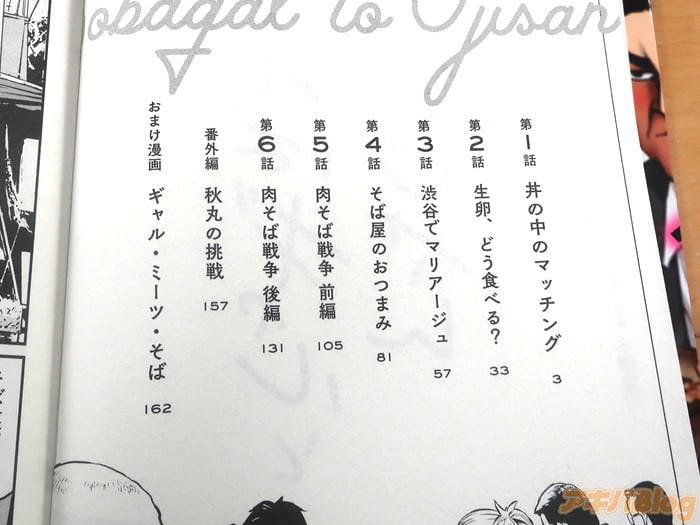 obagal to Ojisan
第1話 丼の中のマッチング 3
第2話 生卵、どう食べる? 33
第3話 渋谷でマリアージュ 57
第4話 そば屋のおつまみ 81
第5話 肉そば戦争 前編 105
第6話 肉そば戦争 後編 131
番外編 秋丸の挑戦 157
おまけ漫画 ギャル・ミーツ・そば 162
アキバBlog